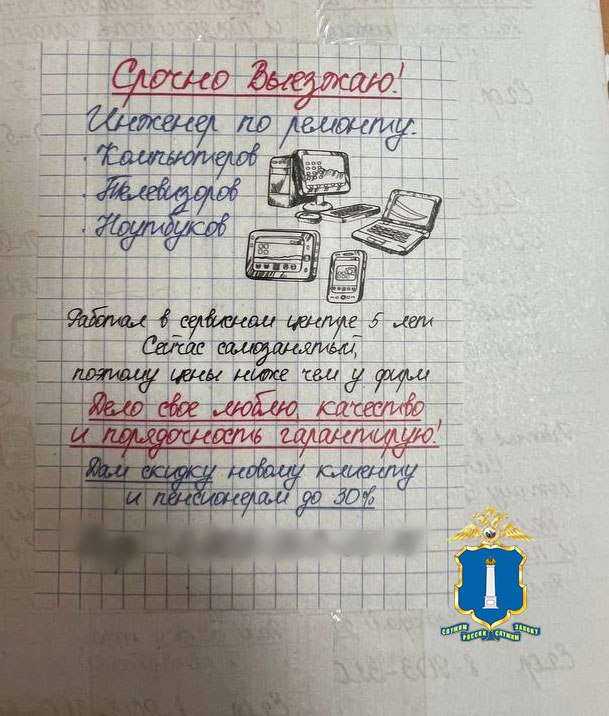 Срочно Выезжаю!
Инженер по ремонту.
. Компьютеров
. Телевизоров
. Ноутбуков
Работал в сервисном центре 5 лет
Сейчас самозанятый,
поэтому цены ниже чем у фирм
Дело свое люблю, качество
и порядочность гарантирую!
Дам скидку новому клиенту
и пенсионерам до 30%
СЛУЖИМ РОССИИ СЛУЖИМ ЗАКОНУ